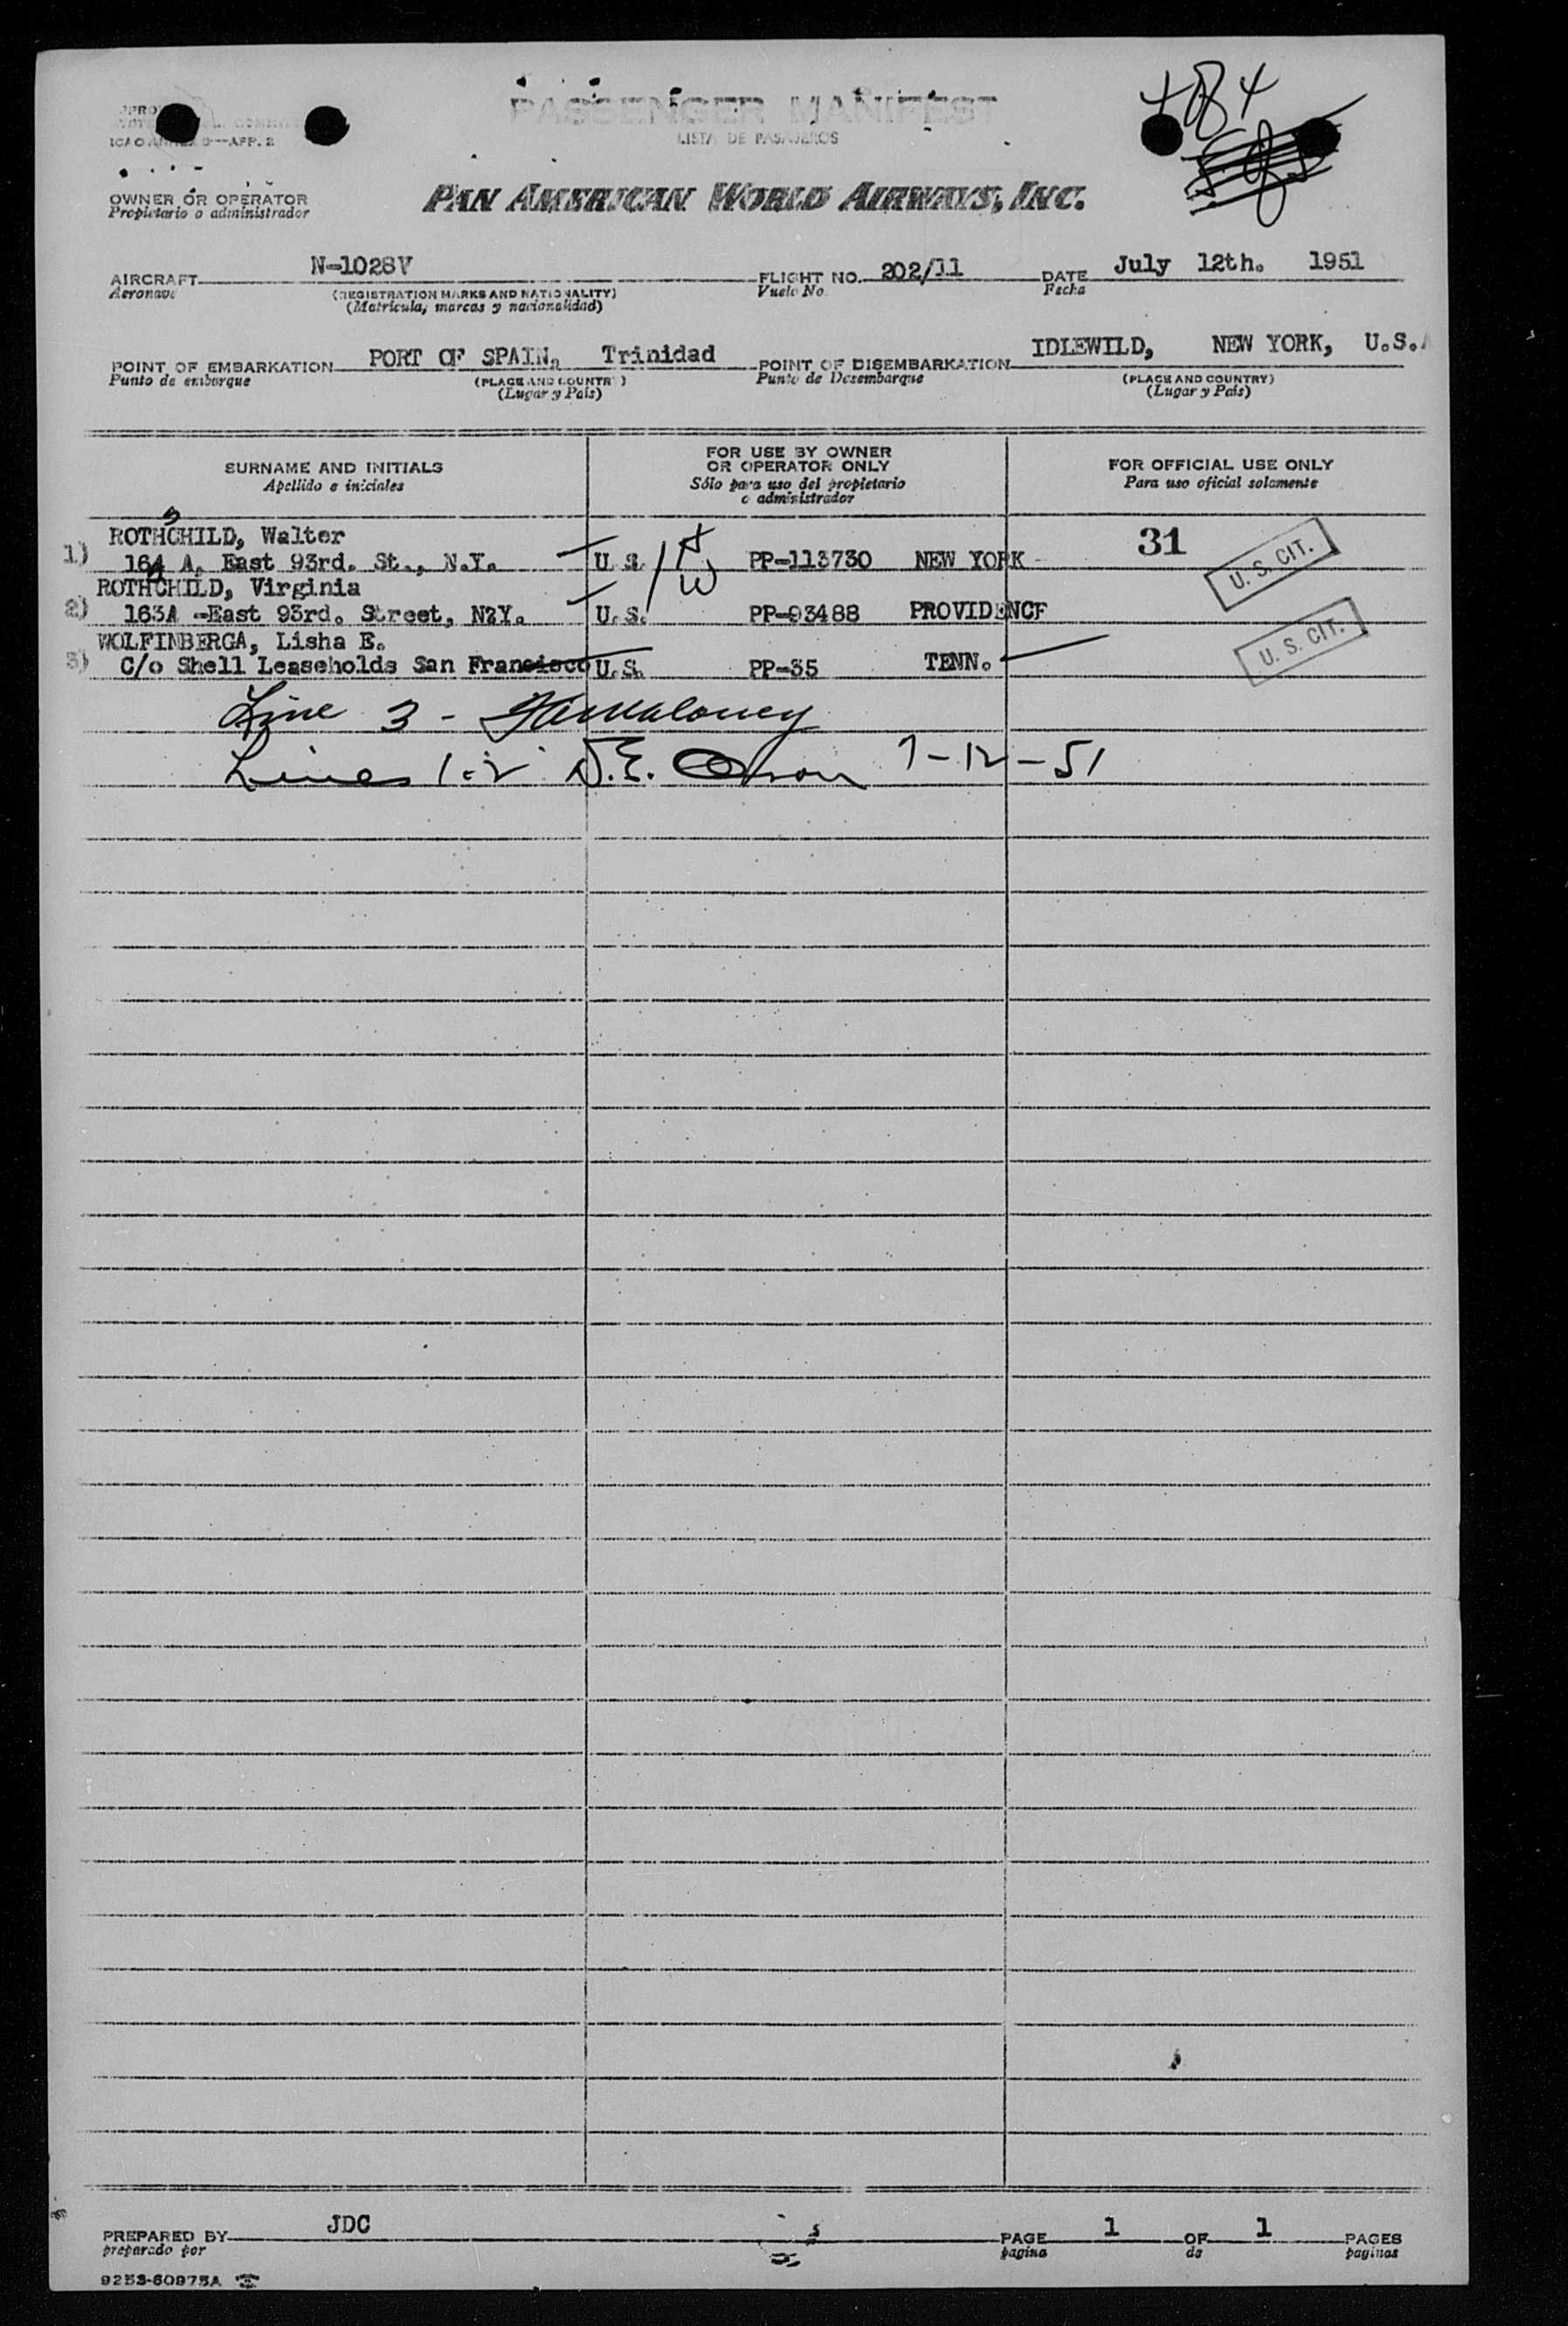 PASSENGER MANIFEST
LISTA DE PASAJEROS
ICAO ANNEX 9—APP. 2
OWNER OR OPERATOR
Propietario o administrador
PAN AMERICAN WORLD AIRWAYS, INC.
AIRCRAFT N-1028V FLIGHT NO. 202/11 DATE July 12th. 1951
Aeronave (REGISTRATION MARKS AND NATIONALITY) Vuelo No. Fecha
(Matrícula, marcas y nacionalidad)
POINT OF EMBARKATION PORT OF SPAIN, Trinidad POINT OF DISEMBARKATION IDLEWILD, NEW YORK, U.S.A
Punto de embarque (PLACE AND COUNTRY) Punto de Desembarque (PLACE AND COUNTRY)
(Lugar y País) (Lugar y País)
SURNAME AND INITIALS
Apellido e iniciales
FOR USE BY OWNER
OR OPERATOR ONLY
Sólo para uso del propietario
o administrador
FOR OFFICIAL USE ONLY
Para uso oficial solamente
ROTHCHILD, Walter
1) 164 A, East 93rd. St., N.Y. U.S. H PP-113730 NEW YORK 31 U. S. CIT.
ROTHCHILD, Virginia W
2) 163A -East 93rd. Street, N?Y. U.S. PP-93488 PROVIDENCE U. S. CIT.
WOLFINBERGA, Lisha E.
3) C/o Shell Leaseholds San Francisco U.S. PP-35 TENN.
Line 3 -
Lines 1-2 7-12-51
PREPARED BY JDC PAGE 1 OF 1 PAGES
preparado por pagina de paginas
9253-60975A